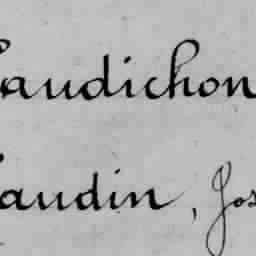 audichon
audin, Jos